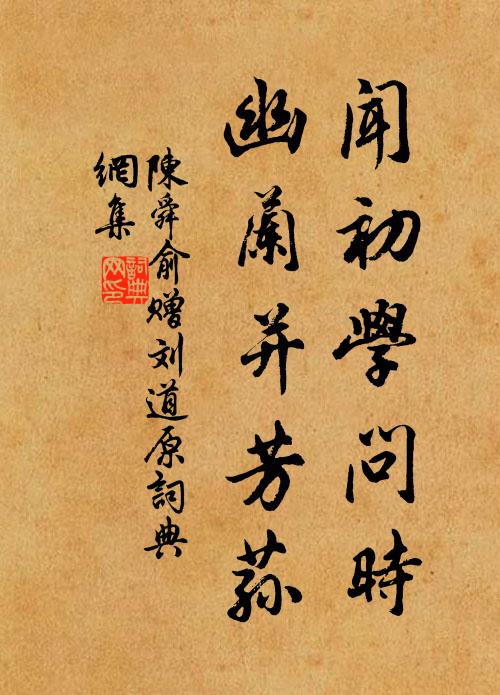 聞初學問時
幽蘭并芳蓀
陳舜俞贈刘道原詞典
網集
詞典網印